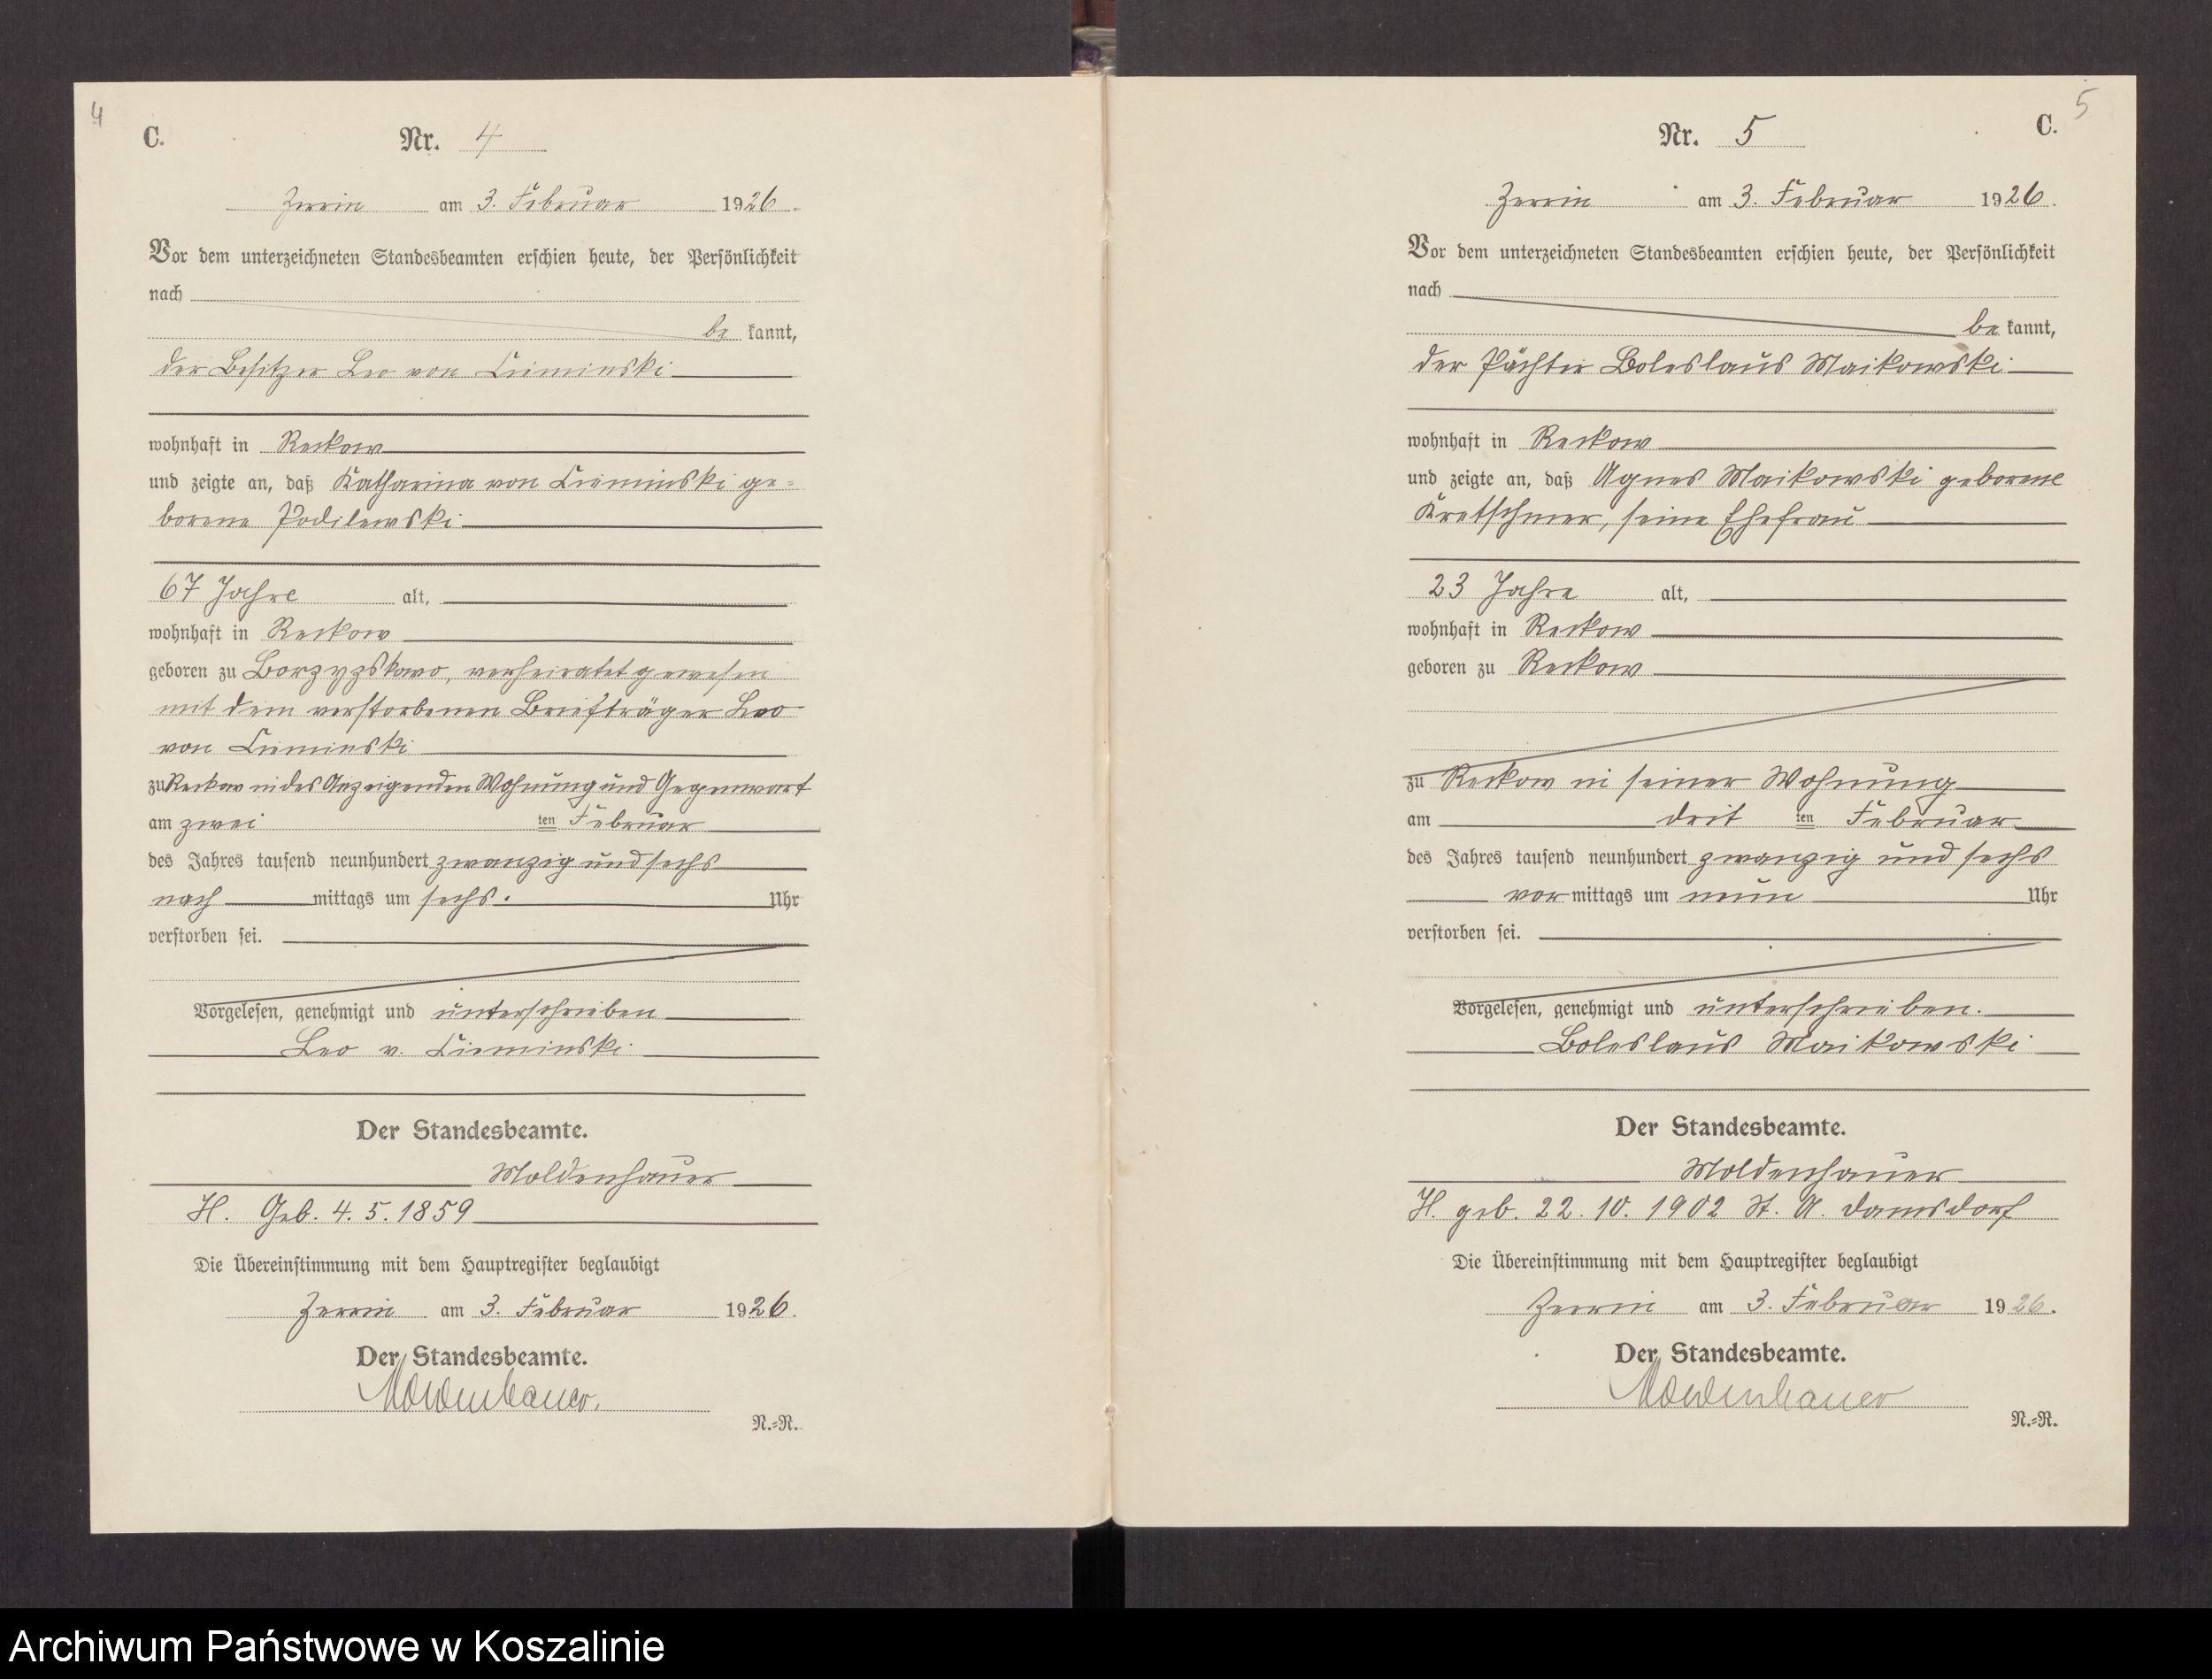 4
C.
Nr. 4
Zerrin am 3. Februar 1926.
Vor dem unterzeichneten Standesbeamten erschien heute, der Persönlichkeit
nach
be kannt,
der Besitzer Leo von Cieminski
wohnhaft in Reckow
und zeigte an, daß Katharina von Cieminski ge-
borene Podilewski
67 Jahre alt,
wohnhaft in Reckow
geboren zu Borzyzskowo, verheiratet gewesen
mit dem verstorbenen Briefträger Leo
von Cieminski
zu Reckow in des Anzeigenden Wohnung und Gegenwart
am zwei ten Februar
des Jahres tausend neunhundert zwanzig und sechs
nach mittags um sechs. Uhr
verstorben sei.
Vorgelesen, genehmigt und unterschrieben
Leo v. Cieminski
Der Standesbeamte.
Moldenhauer
H. Geb. 4.5.1859
Die Übereinstimmung mit dem Hauptregister beglaubigt
Zerrin am 3. Februar 1926.
Der Standesbeamte.
Moldenhauer.
N.=R.
5
C.
Nr. 5
Zerrin am 3. Februar 1926.
Vor dem unterzeichneten Standesbeamten erschien heute, der Persönlichkeit
nach
be kannt,
der Pächter Boleslaus Maikowski
wohnhaft in Reckow
und zeigte an, daß Agnes Maikowski geborene
Kretschmer, seine Ehefrau
23 Jahre alt,
wohnhaft in Reckow
geboren zu Reckow
zu Reckow in seiner Wohnung
am drit ten Februar
des Jahres tausend neunhundert zwanzig und sechs
vor mittags um neun Uhr
verstorben sei.
Vorgelesen, genehmigt und unterschrieben.
Boleslaus Maikowski
Der Standesbeamte.
Moldenhauer
H. geb. 22. 10. 1902 St. A. Damsdorf
Die Übereinstimmung mit dem Hauptregister beglaubigt
Zerrin am 3. Februar 1926.
Der Standesbeamte.
Moldenhauer
N.=R.
Archiwum Państwowe w Koszalinie